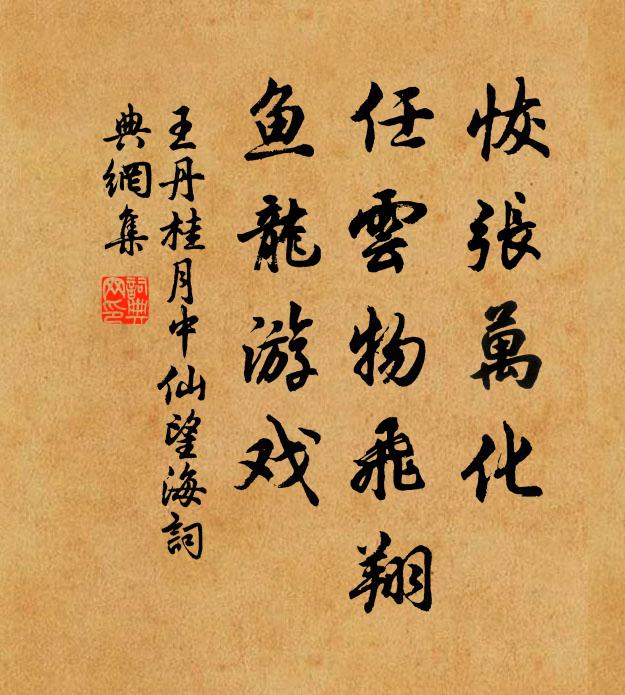 恢張萬化
任雲物飛翔
鱼龍游戏
王丹桂月中仙望海詞
典網集
詞典網印